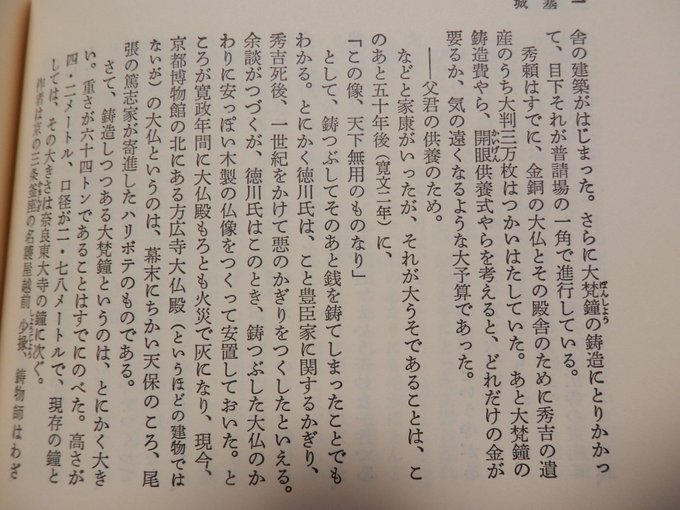 一 墓 城
舎の建築がはじまった。さらに大梵鐘の鋳造にとりかかっ
て、目下それが普請場の一角で進行している。
秀頼はすでに、金銅の大仏とその殿舎のために秀吉の遺
産のうち大判三万枚はつかいはたしていた。あと大梵鐘の
鋳造費やら、開眼供養式やらを考えると、どれだけの金が
要るか、気の遠くなるような大予算であった。
――父君の供養のため。
などと家康がいったが、それが大うそであることは、こ
のあと五十年後(寛文二年)に、
「この像、天下無用のものなり」
として、鋳つぶしてそのあと銭を鋳てしまったことでも
わかる。とにかく徳川氏は、こと豊臣家に関するかぎり、
秀吉死後、一世紀をかけて悪のかぎりをつくしたといえる。
余談がつづくが、徳川氏はこのとき、鋳つぶした大仏のか
わりに安っぽい木製の仏像をつくって安置しておいた。と
ころが寛政年間に大仏殿もろとも火災で灰になり、現今、
京都博物館の北にある方広寺大仏殿(というほどの建物では
ないが)の大仏というのは、幕末にちかい天保のころ、尾
張の篤志家が寄進したハリボテのものである。
さて、鋳造しつつある大梵鐘というのは、とにかく大き
い。重さが六十四トンであることはすでにのべた。高さが
四・二メートル、口径が二・七八メートルで、現存の鐘と
しては、その大きさは奈良東大寺の鐘に次ぐ。
作者は京の三条釜座の名護屋越前少掾、鋳物師はわざ